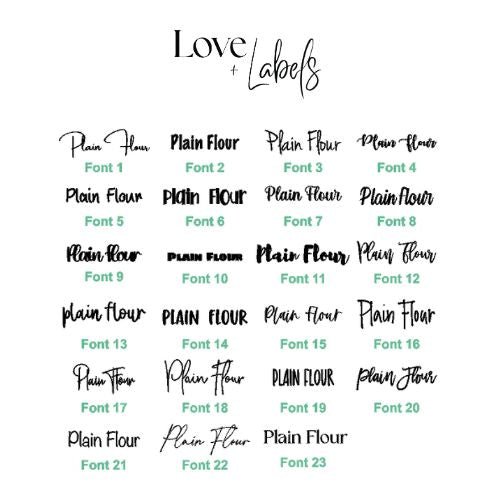 Love
+ Labels
Plain Flour Plain Flour Plain Flour Plain Flour
Font 1 Font 2 Font 3 Font 4
Plain Flour Plain Flour Plain Flour Plain Flour
Font 5 Font 6 Font 7 Font 8
Plain flour PLAIN FLOUR Plain Flour Plain Flour
Font 9 Font 10 Font 11 Font 12
plain flour PLAIN FLOUR Plain Flour Plain Flour
Font 13 Font 14 Font 15 Font 16
Plain Flour Plain Flour PLAIN FLOUR plain Flour
Font 17 Font 18 Font 19 Font 20
Plain Flour Plain Flour Plain Flour
Font 21 Font 22 Font 23